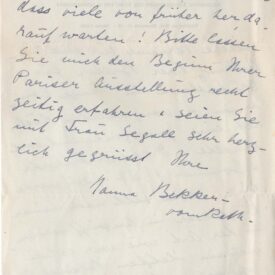 dass viele von früher her da-
rauf warten! Bitte lassen
Sie mich den Beginn Ihrer
Pariser Ausstellung recht
zeitig erfahren & seien Sie
mit Frau Segall sehr herz-
lich gegrüsst Ihre
Hanna Bekker-
vomRath.